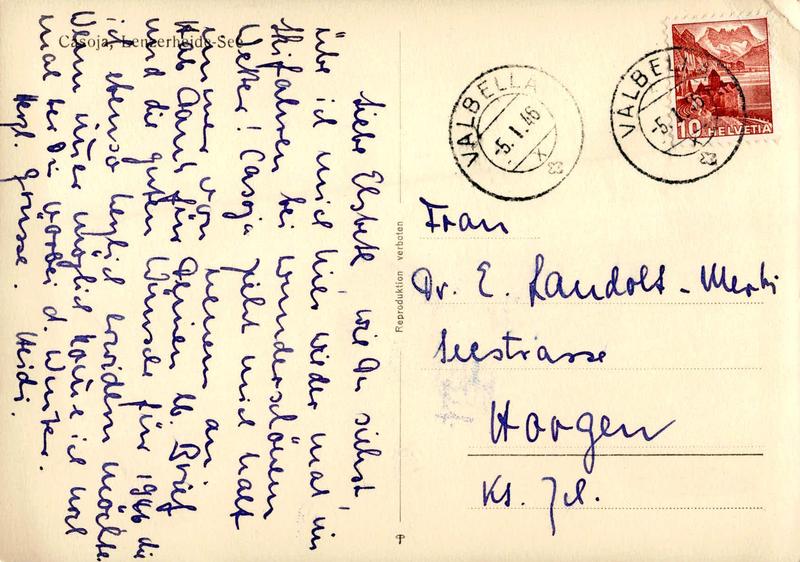 Casoja, Lenzerheide-See
Liebe Elsbeth, wie Du siehst,
übe ich mich hier wieder mal im
Skifahren bei wunderschönem
Wetter! Casoja zieht mich halt
immer von neuem an.
Hab Dank für Deinen lb. Brief
und die guten Wünsche für 1946 die
ich ebenso herzlich erwidern möchte.
Wenn immer möglich komme ich mal
bei Dir vorbei d. Winter.
Herzl. Grüsse. Heidi.
Reproduktion verboten
VALBELLA
-5.I.46
X
VALBELLA
-5.I.46
X
10 HELVETIA
Frau
Dr. E. Landolt-Merki
Seestrasse
Horgen
Kt. Zch.